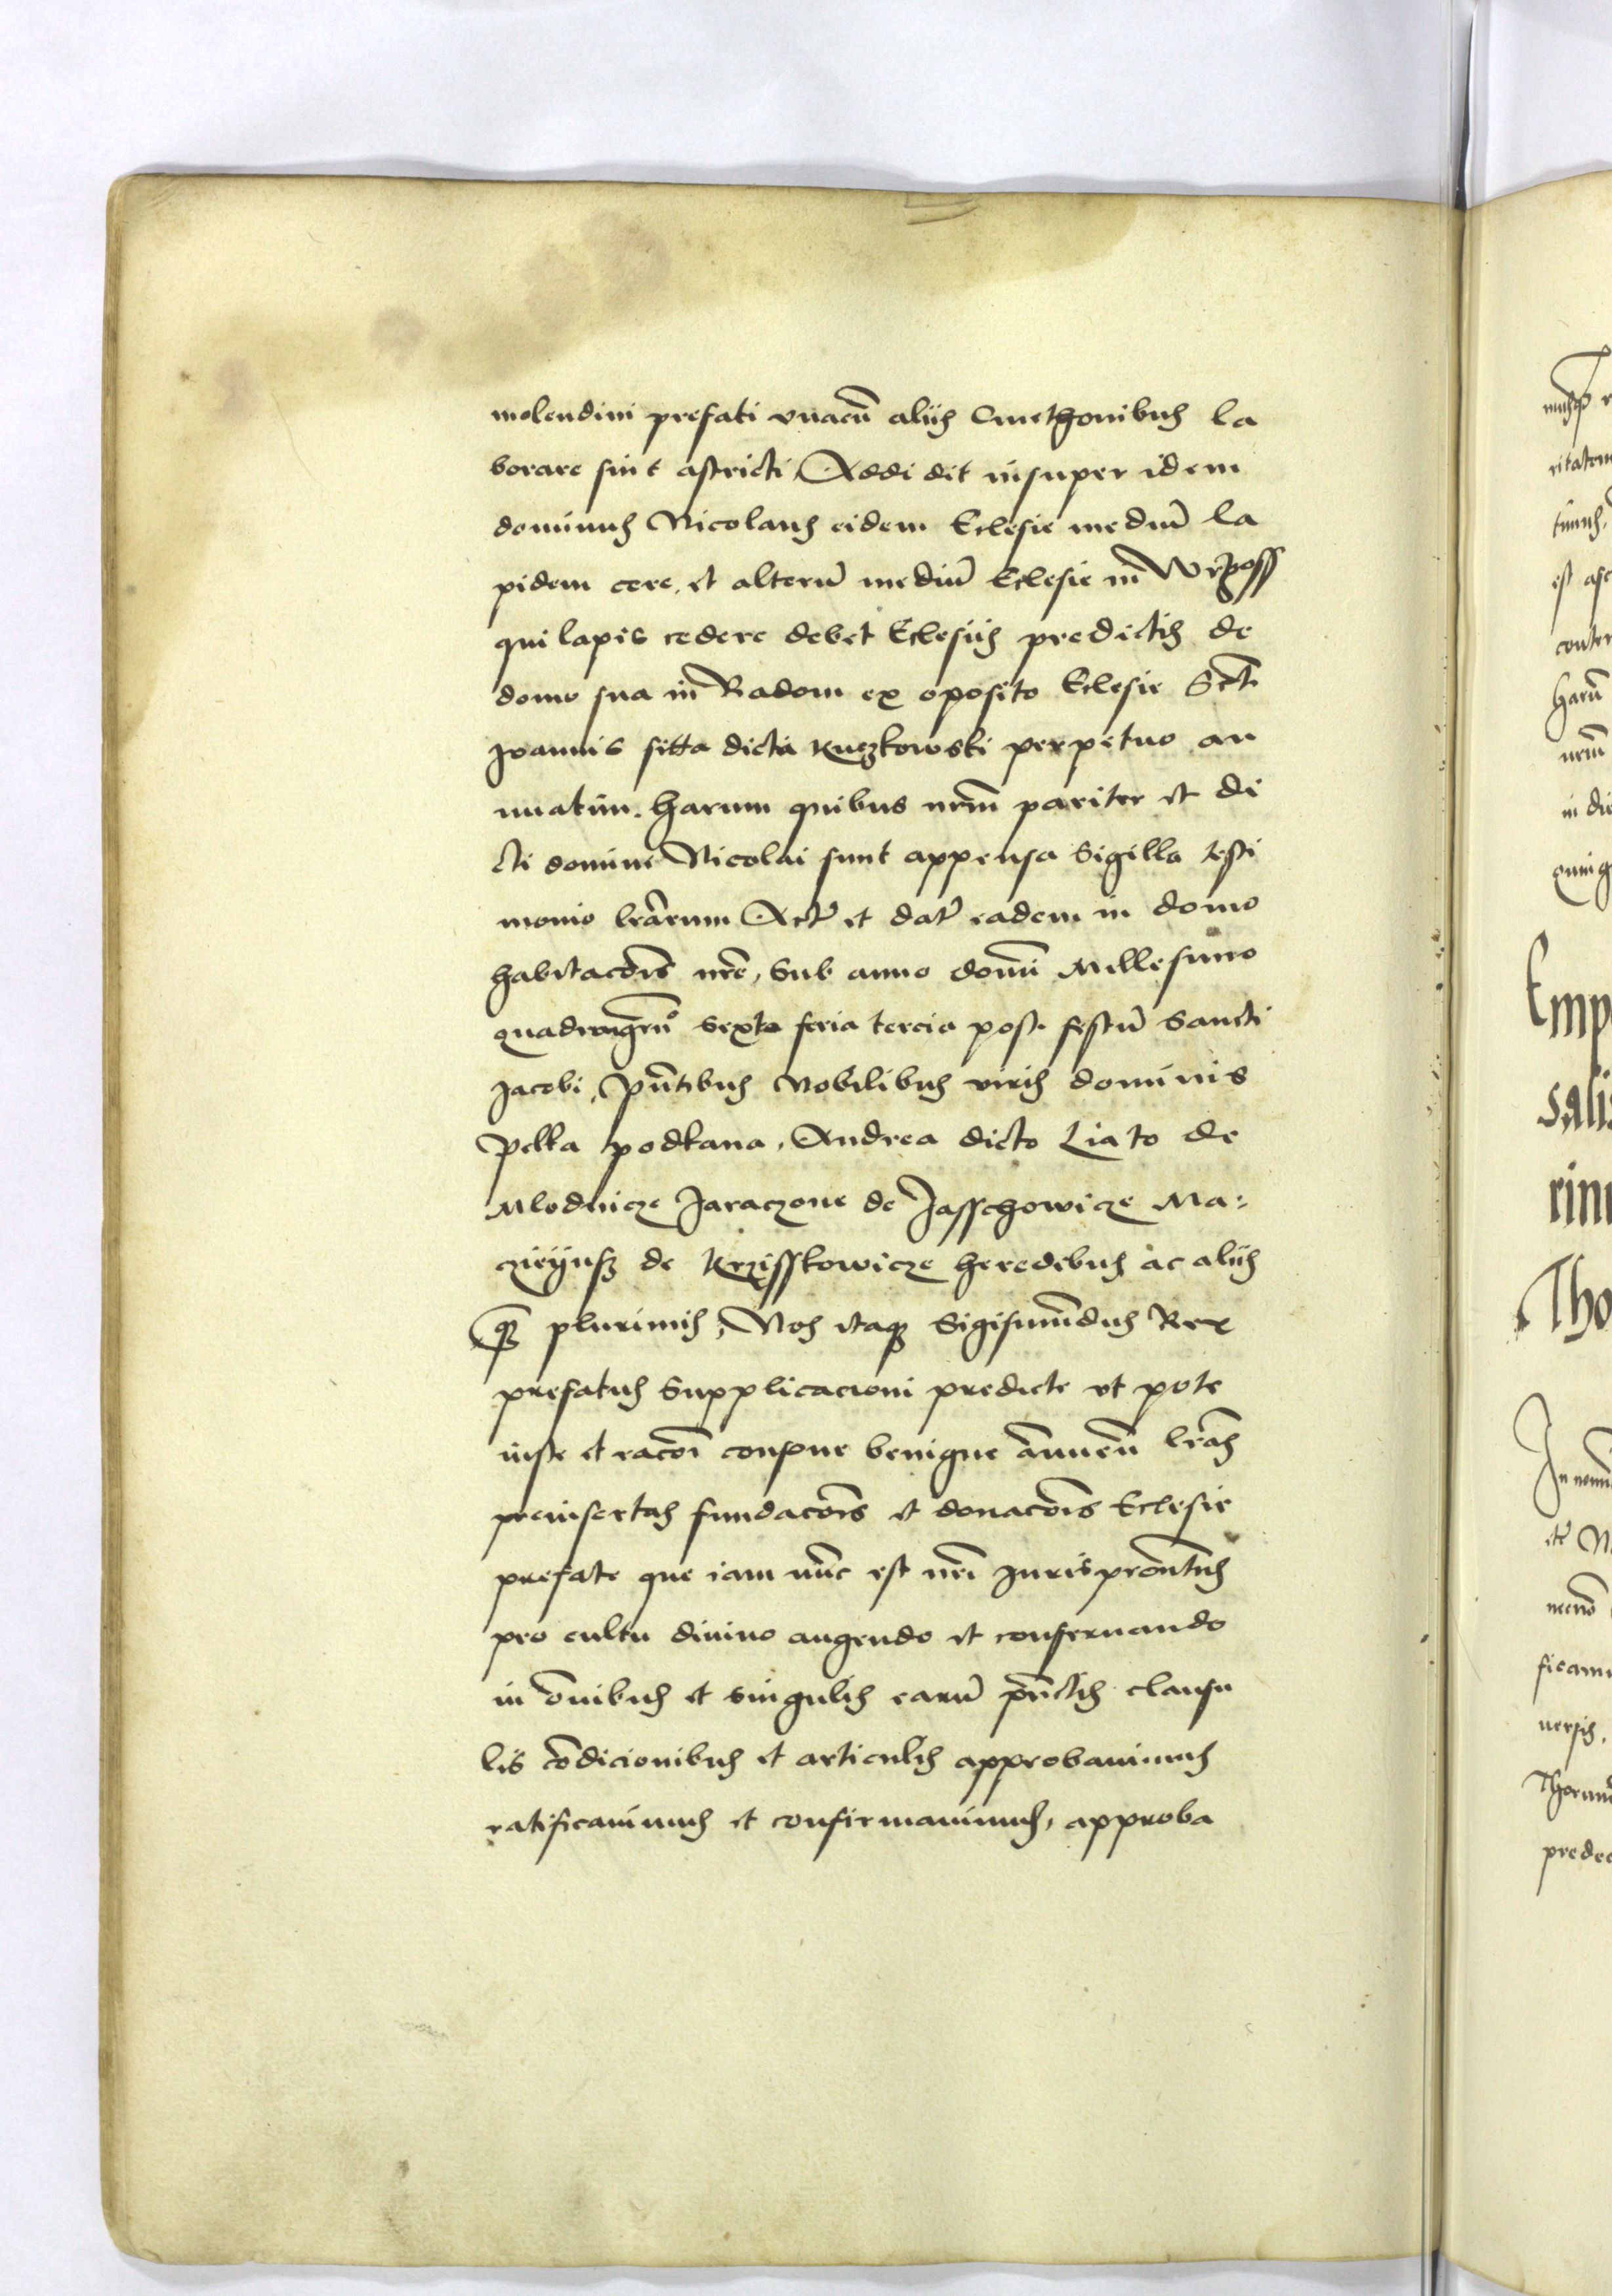 molendini prefati vnacū aliis Cmethonibus la
borare sint astricti Addi dit insuper idem
dominus Nicolaus eidem Eclesie mediū la
pidem cere, et alterū mediū Eclesie in Wrzoss
qui lapis cedere debet Eclesiis predictis de
domo sua in Radom ex oposito Eclesie Sct̄i
Joannis sitta dicta Kuczkowski perpetuo an
nuatim. harum quibus nr̄m pariter et di
cti domini Nicolai sunt appensa Sigilla testi
monio lr̄arum Actū et datū eadem in domo
habitacōis nr̄e, Sub anno domī Millesimo
quadringenº Sexto feria tercia post festū Sancti
Jacobi, pn̄tibus Nobilibus viris dominis
Pelka podkana, Andrea dicto Liato de
Mlodnicze Jaraczone de Jasschowicze Ma:
czieyusz de Krzisskowicze heredibus ac aliis
qz̄ plurimis, Nos itaqz Sigismūdus Rex
prefatus Supplicacioni predicte vt pote
iuste et racōi consone benigne ānuen̄ lr̄as
preinsertas fundacōis et donacōis Eclesie
prefate que iam nūc est nr̄i Juris pr̄onatus
pro cultu diuino augendo et conseruando
in ōnibus et Singulis earū pūctis clausu
lis cōdicionibus et articulis approbauimus
ratificauimus et confirmauimus, approba